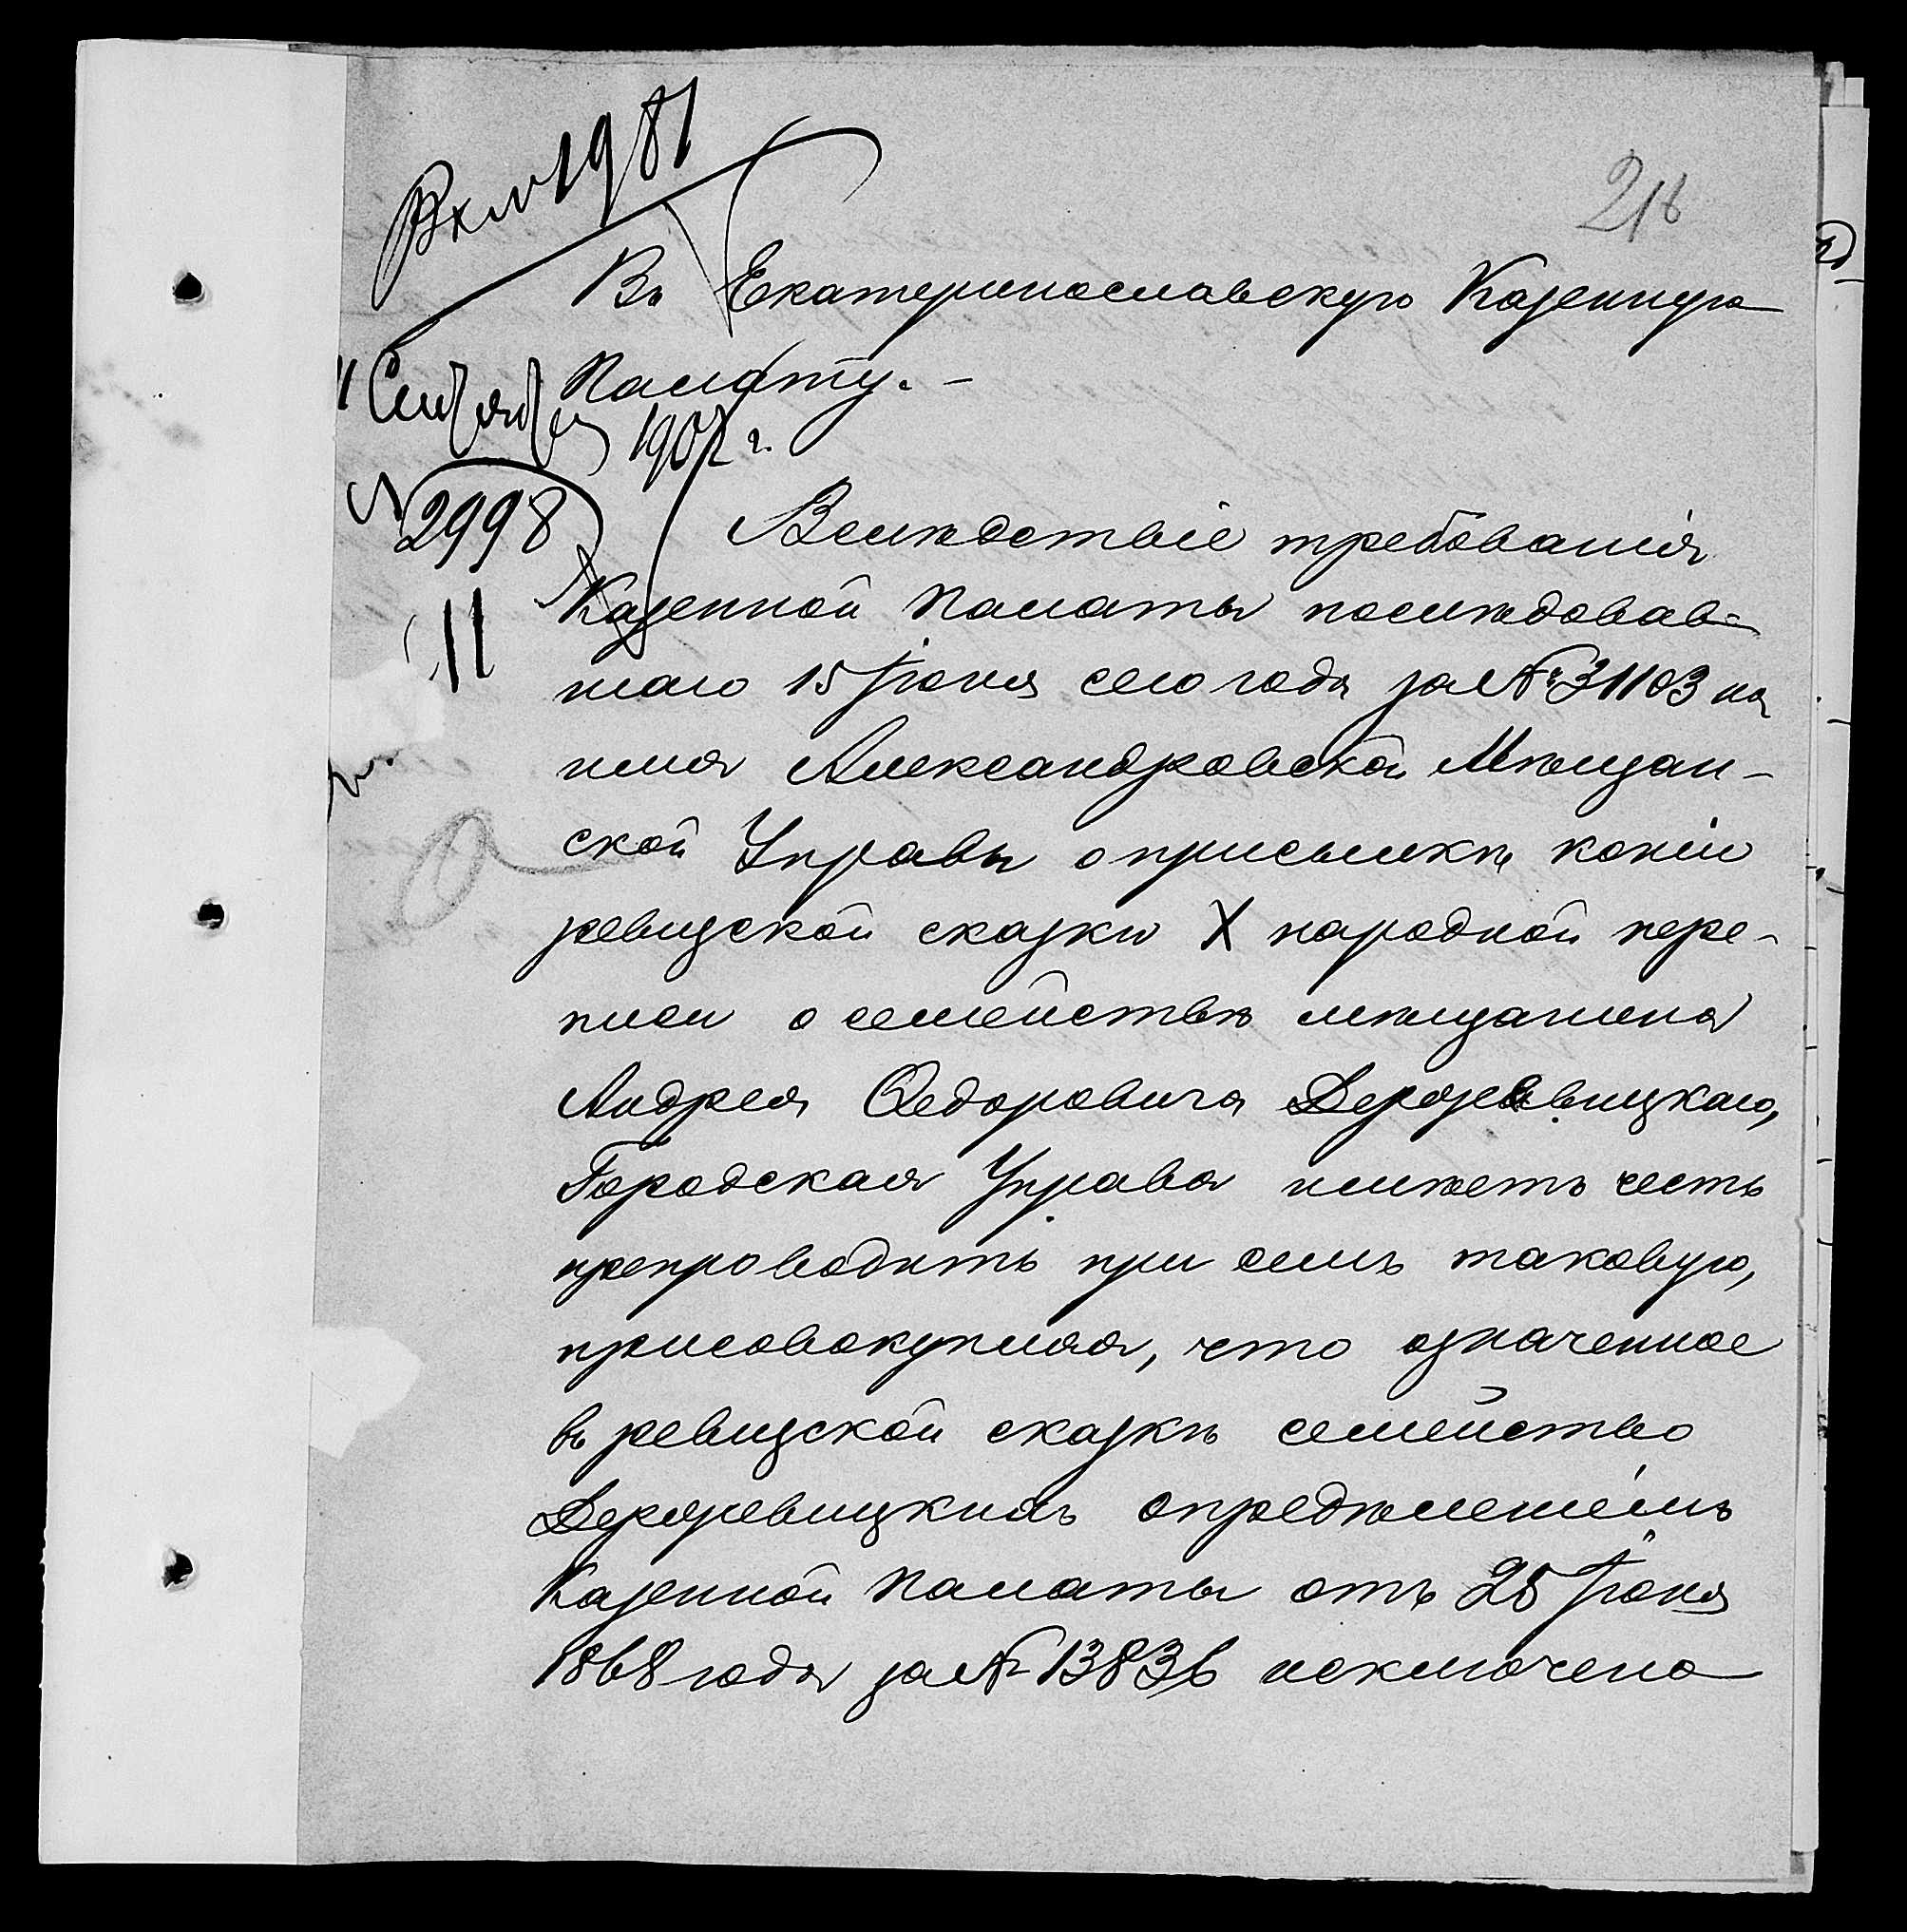 Вх № 1981
216
Въ Екатеринославскую Казенную
Палату. –
11 Сентября 1902 г.
№ 2998
11
Вслѣдствіе требованія
Казенной Палаты послѣдовав-
шаго 15 Іюня сего года за № 31103 на
имя Александровской Мѣщан-
ской Управы о присылкѣ копіи
ревизской сказки X народной пере-
писи о семействѣ мѣщанина
Андрея Ѳедоровича
Городская Управа имѣетъ честь
препроводить при семъ таковую,
присовокупляя, что означенное
въ ревизской сказкѣ семейство
опредѣленіемъ
Казенной Палаты отъ 25 Іюня
1868 года за № 13836 исключено